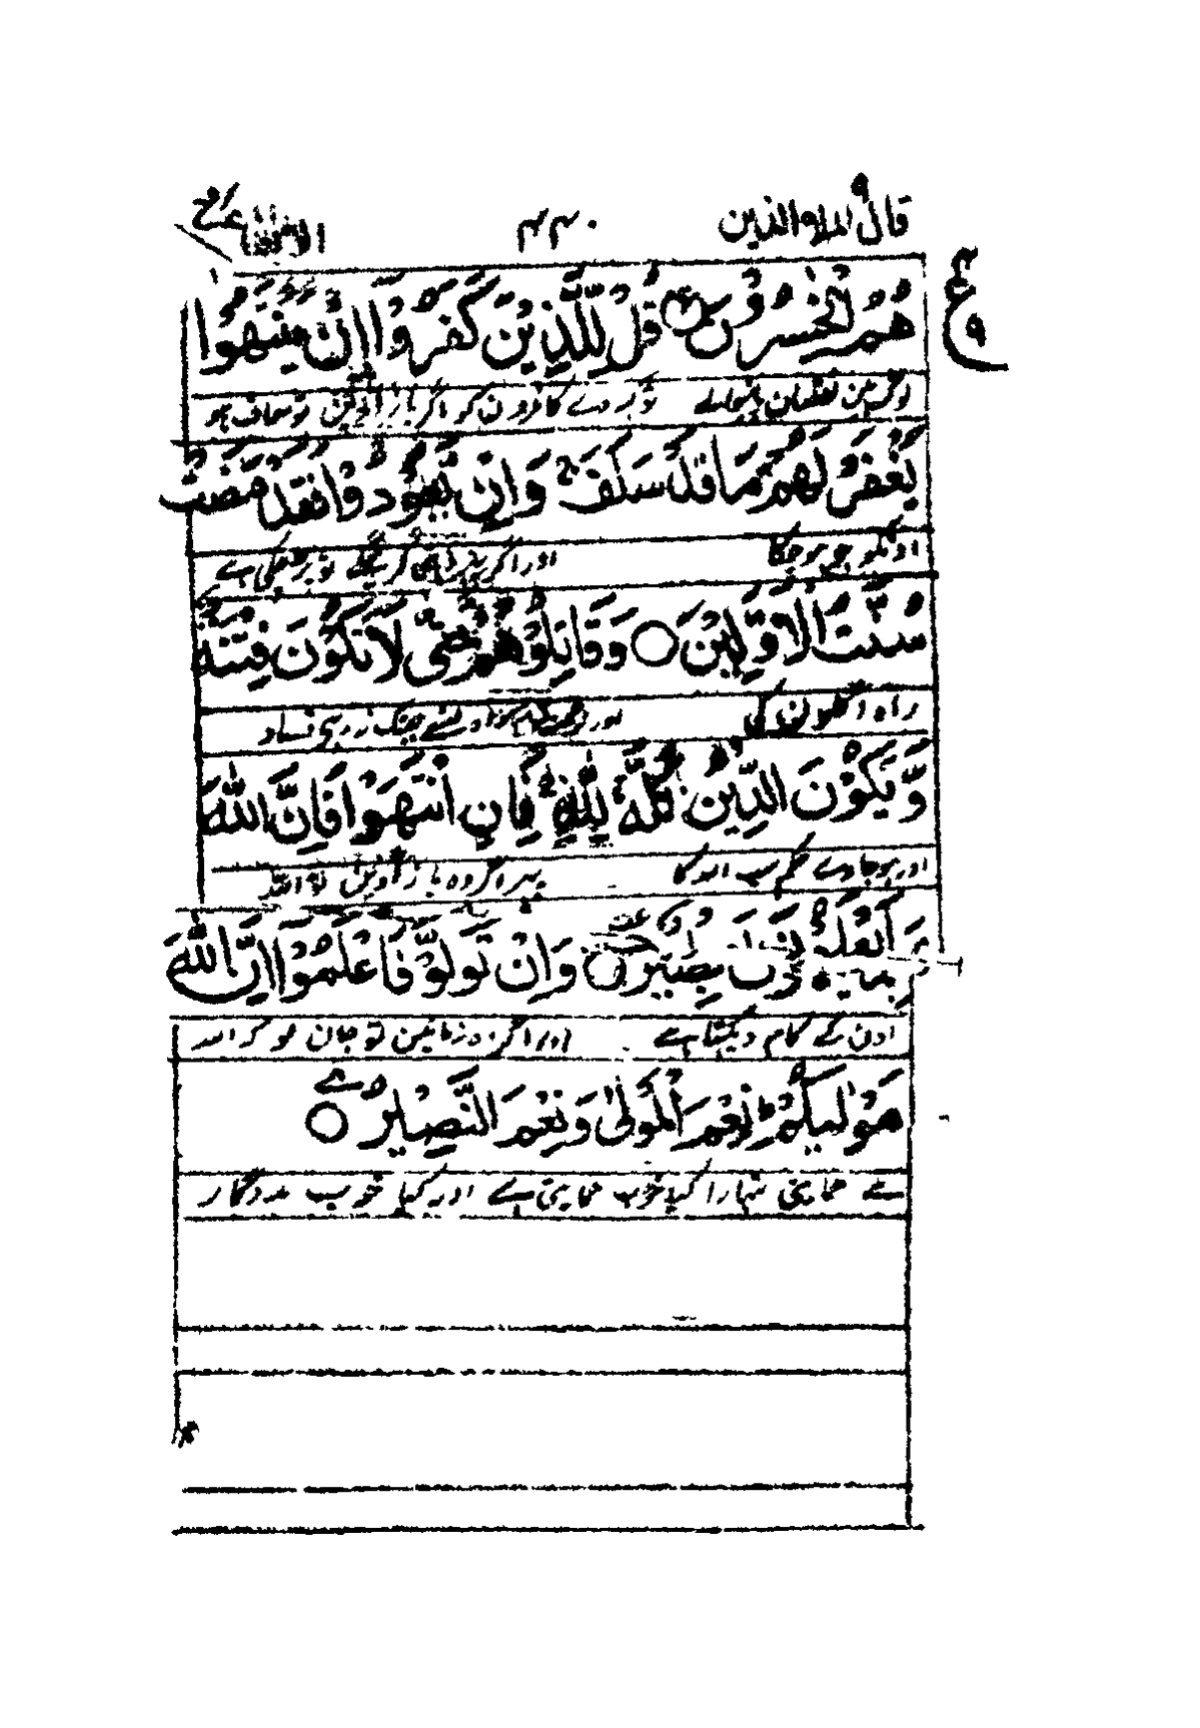 قال الملاء الذین ۹ ۴۴۰ الانفال ۸
هُمُ الْخٰسِرُوْنَ قُلْ لِّلَّذِيْنَ كَفَرُوْۤا اِنْ يَّنْتَهُوْا
لوگ ہین نقصان توکہدے کافرون کو اگر باز تومعاف ہو
يُغْفَرْ لَهُمْ مَّا قَدْ سَلَفَ ۚ وَاِنْ يَّعُوْدُوْا فَقَدْ مَضَتْ
اونکو جو ہوچکا اور اگر پھر
سُنَّتُ الْاَوَّلِيْنَ ○ وَقَاتِلُوْهُمْ حَتّٰى لَا تَكُوْنَ فِتْنَةٌ
راہ اگلون کی اور فساد
وَّيَكُوْنَ الدِّيْنُ كُلُّهٗ لِلّٰهِ ۚ فَاِنِ انْتَهَوْا فَاِنَّ اللّٰهَ
اور ہوجاوے حکم سب اللہ کا پھر اگر وہ باز آوین تو اللہ
بِمَا يَعْمَلُوْنَ بَصِيْرٌ ○ وَاِنْ تَوَلَّوْا فَاعْلَمُوْۤا اَنَّ اللّٰهَ
اون کے کام دیکھتا ہے اور اگر وہ نہ مانین تو جان لو کہ اللہ
مَوْلٰىكُمْ ؕ نِعْمَ الْمَوْلٰى وَنِعْمَ النَّصِيْرُ ○
ہے حمایتی تمہارا کیا خوب حمایتی ہے اور کیا خوب مددگار